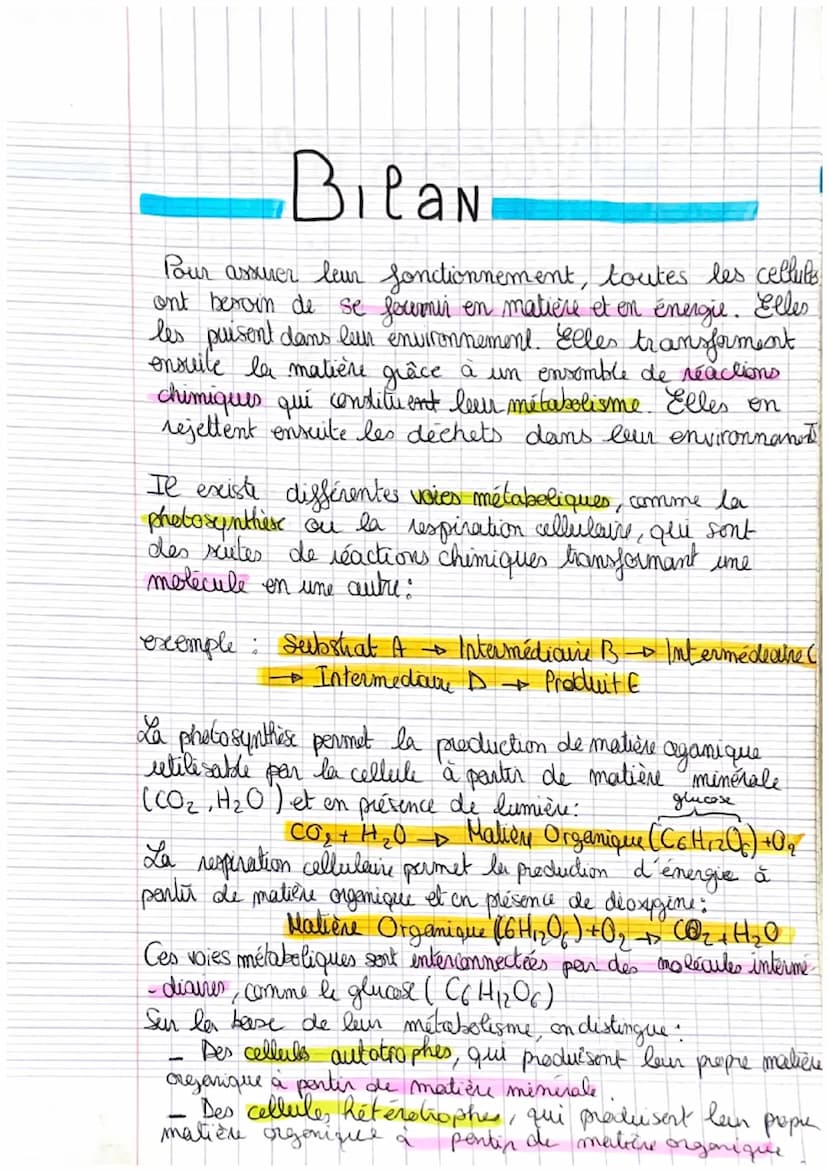 Bilan
Pour assurer leur fonctionnement, toutes les cellules
ont besoin de se fournir en matière et en énergie. Elles
les puisent dans leur environnement. Elles transforment
ensuite la matière grâce à un ensemble de réactions
chimiques qui constituent leur métabolisme. Elles en
rejettent ensuite les déchets dans leur environnement
Il existe différentes voies métaboliques, comme la
photosynthèse ou la respiration cellulaire, qui sont
des suites de réactions chimiques transformant une
molécule en une autre :
exemple : Substrat A → Intermédiaire B → Intermédiaire C
→ Intermediaire D → Produit E
La photosynthèse permet la production de matière oganique
utilisable par la cellule à partir de matière minérale
(CO₂, H₂O) et en présence de lumière :
glucose
CO₂ + H₂O → Matière Organique (C₆H₁₂O₆) + O₂
La respiration cellulaire permet la production d'énergie à
partir de matière organique et en présence de dioxygène :
Matière Organique (C6H₁₂O₆) + O₂ → CO₂ + H₂O
Ces voies métaboliques sont interconnectées par des molécules intermé-
-diaires, comme le glucose (C₆H₁₂O₆)
Sur la base de leur métabolisme, on distingue :
- Des cellules autotrophes, qui produisent leur propre matière
organique à partir de matière minérale
- Des cellules hétérotrophes, qui produisent leur propre
matière organique à partir de matière organique.